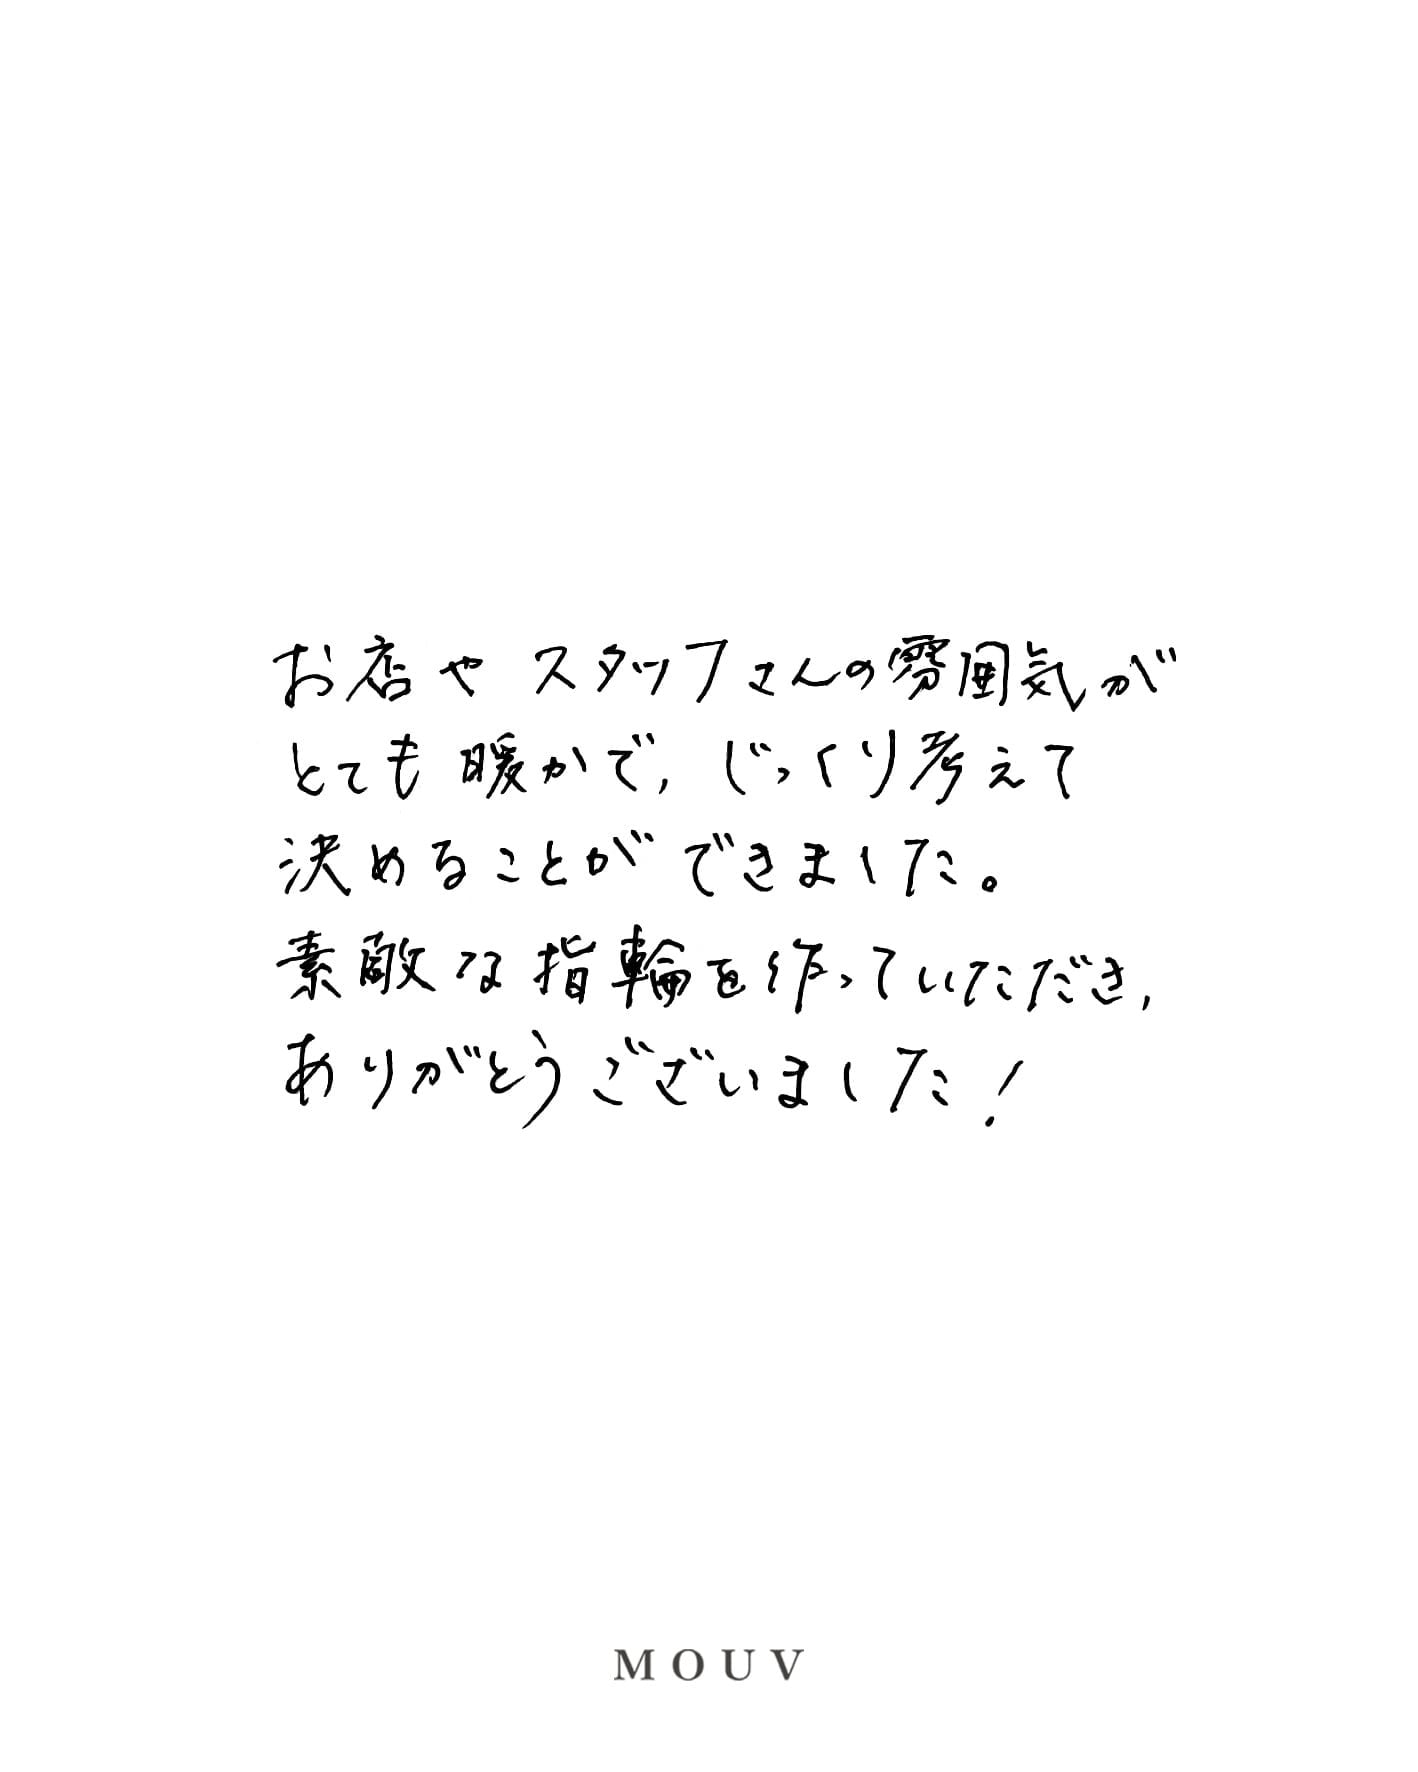 お店やスタッフさんの雰囲気が
とても暖かで,じっくり考えて
決めることができました。
素敵な指輪を作っていただき,
ありがとうございました!
MOUV